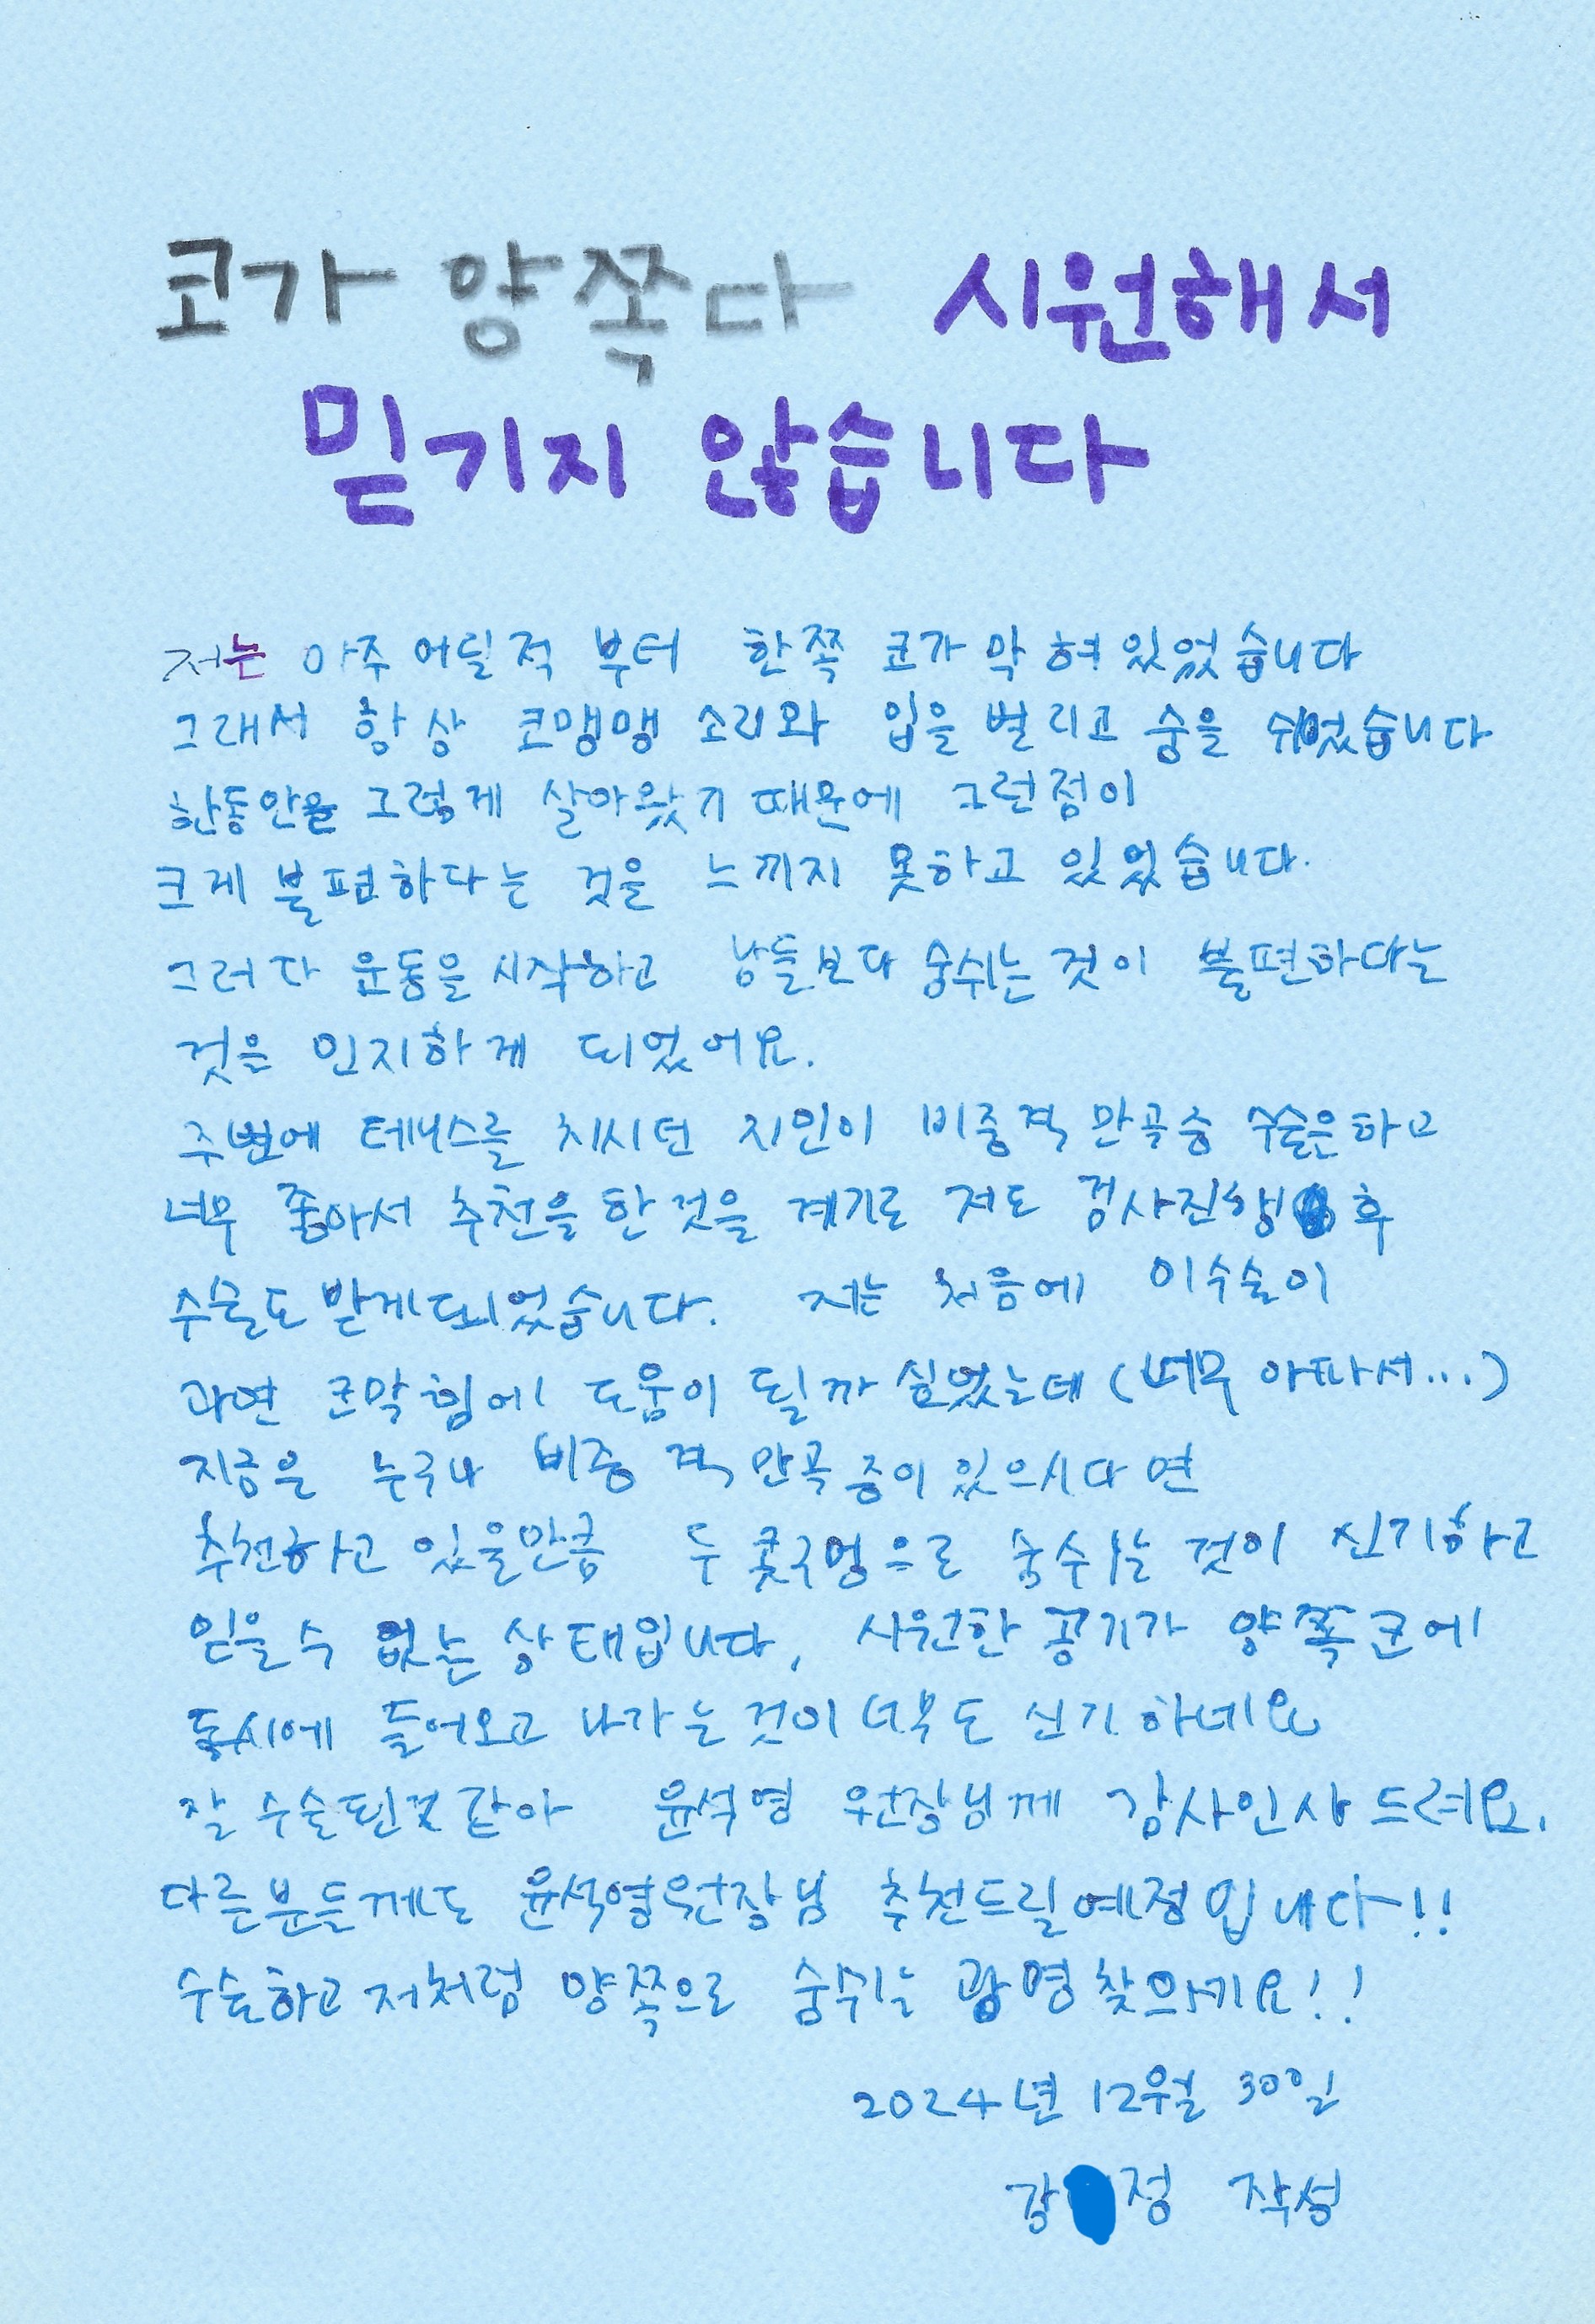 코가 양쪽다 시원해서
믿기지 않습니다
저는 아주 어릴적 부터 한쪽 코가 막혀있었습니다
그래서 항상 코맹맹 소리와 입을 벌리고 숨을 쉬었습니다
한동안을 그렇게 살아왔기 때문에 그런점이
크게 불편하다는 것을 느끼지 못하고 있었습니다.
그러다 운동을 시작하고 남들보다 숨쉬는 것이 불편하다는
것을 인지하게 되었어요.
주변에 테니스를 치시던 지인이 비중격 만곡증 수술은하고
너무 좋아서 추천을 한것을 계기로 저도 검사진행 후
수술도 받게되었습니다. 저는 처음에 이수술이
과연 코막힘에 도움이 될까 싶었는데 (너무 아파서...)
지금은 누구나 비중격만곡증이 있으시다면
추천하고 있을만큼 두 콧구멍으로 숨쉬는 것이 신기하고
믿을수 없는 상태입니다, 시원한 공기가 양쪽코에
동시에 들어오고 나가는 것이 너무도 신기하네요
잘 수술된것 같아 윤석영 원장님께 감사인사 드려요.
다른분들께도 윤석영원장님 추천드릴예정입니다!!
수술하고 저처럼 양쪽으로 숨쉬는 광명찾으세요!!
2024년 12월 30일
강 정 작성